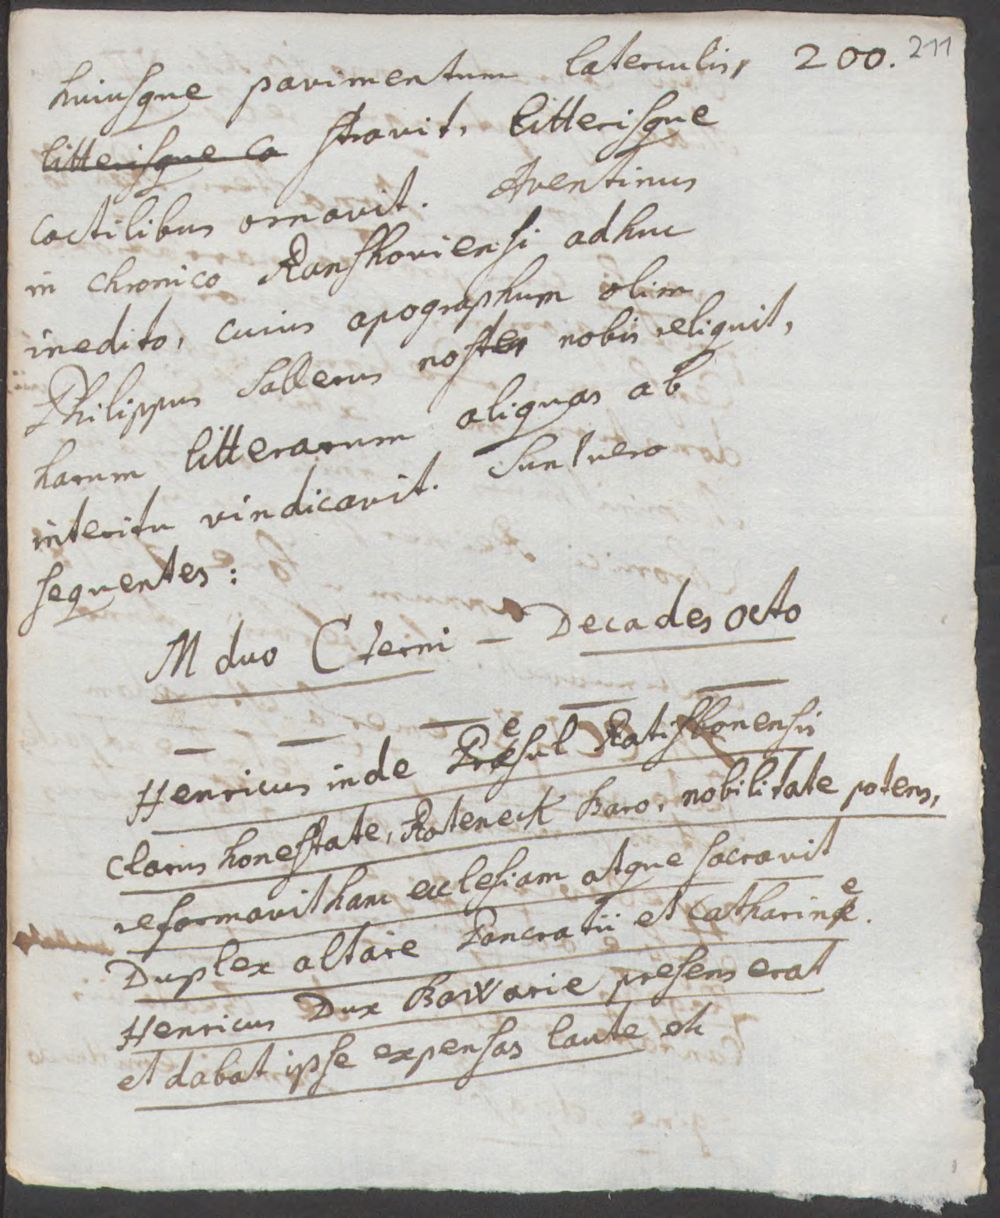 huiusque pavimentum laterculis, 200. 211
litterisque co stravit, litterisque
coctilibus ornavit. Aventinus
in chronico Ranshoviensi adhuc
inedito, cuius apographum olim
Philippus Sallerus noster nobis reliquit,
harum litterarum aliquas ab
interitu vindicavit. Sunt vero
sequentes:
M duo C terni – Decades octo
— — — — —
Henricus inde Presul Ratisbonensis
Clarus honestate, Roteneck Baro, nobilitate potens,
reformavit hanc ecclesiam atque sacravit
Duplex altare Pancratii et Catharine.
Henricus Dux Bawarie presens erat
et dabat ipse expensas laute etc